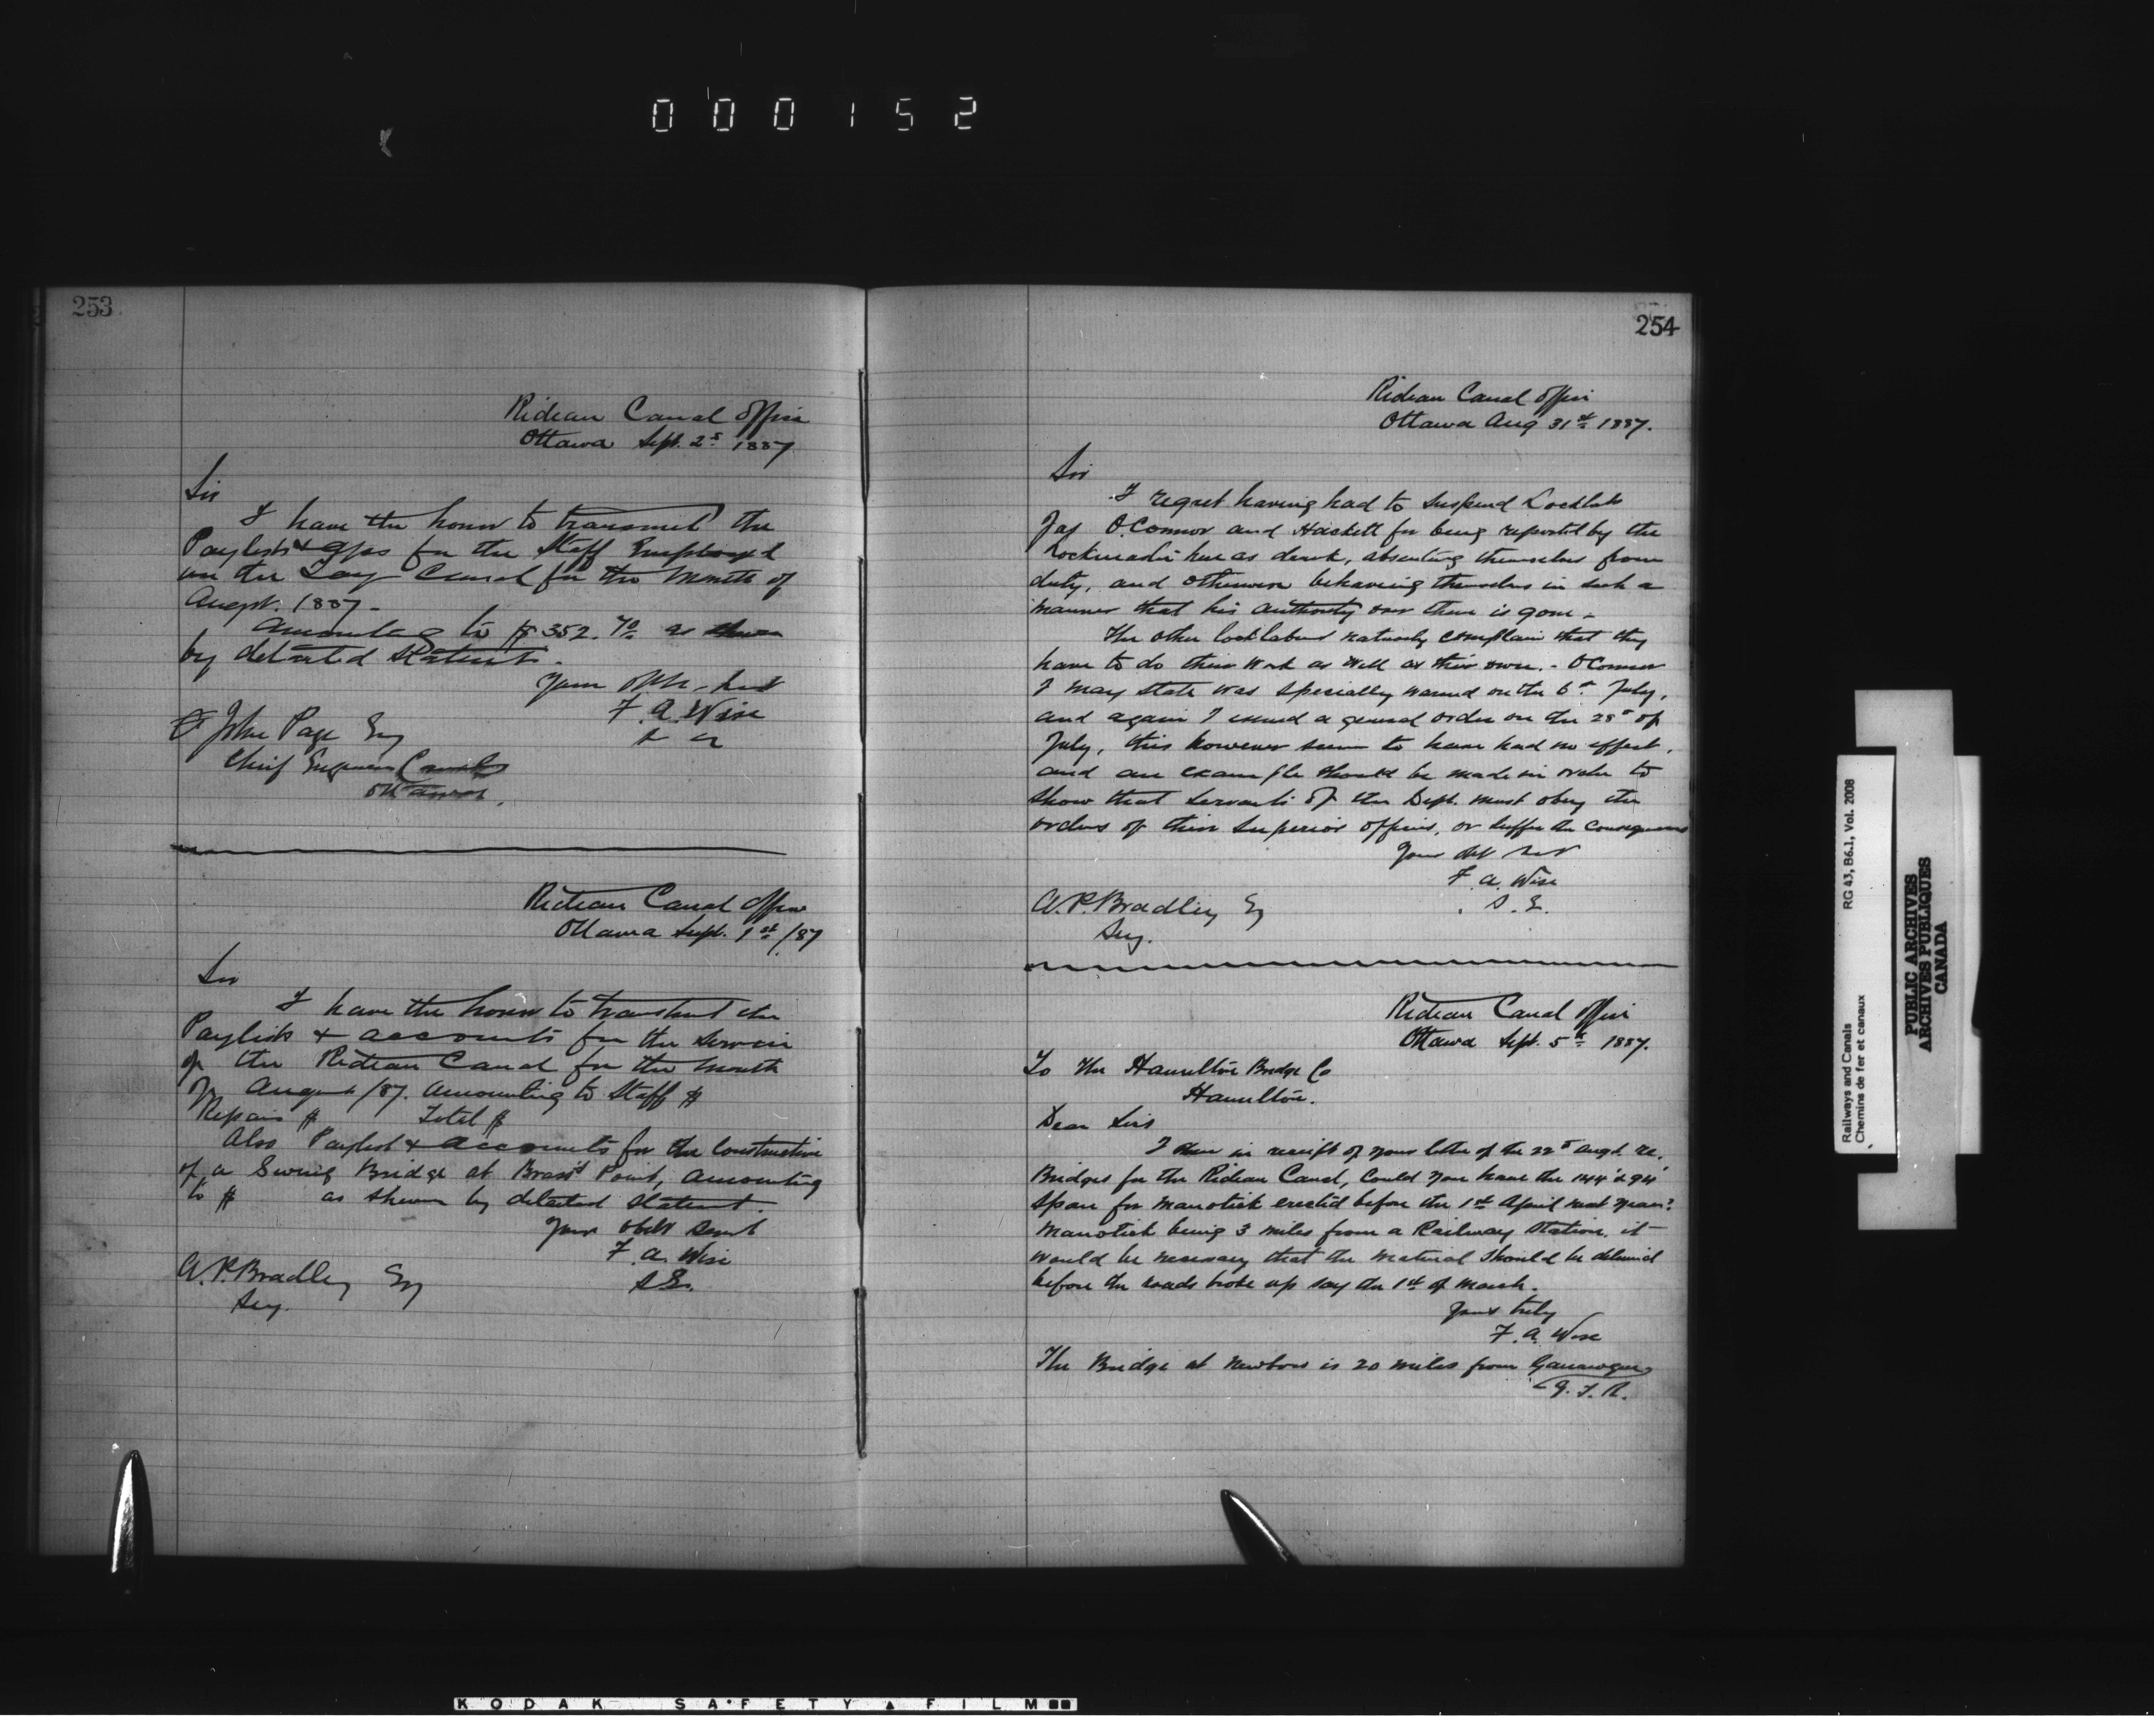 000152
253
Rideau Canal Office
Ottawa Sept. 2d 1887
Sir
I have the honor to transmit the
Paylists & for the Staff Employed
on the Tay Canal for the Month of
Augst. 1887-
Amounting to $352.70 as shewn
by detailed Statent.
Your Obt
F. A. Wise
John Page Esq
Chief Engineer Canals
Ottawa.
Rideau Canal Office
Ottawa Sept. 1st /87
Sir
I have the honor to transmit the
Paylists & accounts for the Service
of the Rideau Canal for the Month
of August /87. Amounting to Staff $
Repairs $ Total $
Also Paylist & Accounts for the Construction
of a Swing Bridge at Brass's Point, amounting
to $ as shewn by detailed Statent.
Your Obdt Servt
F. A. Wise
S.E.
A. P. Bradley Esq
Secy.
254
Rideau Canal Office
Ottawa Aug 31st 1887.
Sir
I regret having had to suspend Locklabs
Jas O.Connor and Hackett for being reported by the
Lockmaster here as drunk, absenting themselves from
duty, and otherwise behaving themselves in such a
manner that his authority over them is gone-
The other locklabrs naturally complain that they
have to do their work as well as their own. - OConnor
I may state was specially warned on the 6th July,
and again I issued a general order on the 28th of
July, this however seem to have had no effect,
and an example should be made in order to
show that servants of the Dept. must obey the
orders of their Superior officers, or suffer the Consequences
Your Obt Sert
F. A. Wise
S. E.
A. P. Bradley Esq
Secy.
Rideau Canal Office
Ottawa Sept. 5th 1887.
To The Hamilton Bridge Co
Hamilton.
Dear Sirs
I am in receipt of your letter of the 22d Augt. re.
Bridges for the Rideau Canal, Could you have the 144' & 94'
Span for Manotick erected before the 1st April next year?
Manotick being 3 miles from a Railway Station, it
would be necessary that the material should be delivered
before the roads broke up say the 1st of March.
Yours truly
F. A. Wise
The Bridge at Newboro is 20 miles from Gananoque
G. T. R.
Railways and Canals RG 43, B6.1, Vol. 2008
Chemins de fer et canaux
PUBLIC ARCHIVES
ARCHIVES PUBLIQUES
CANADA
KODAK SAFETY FILM